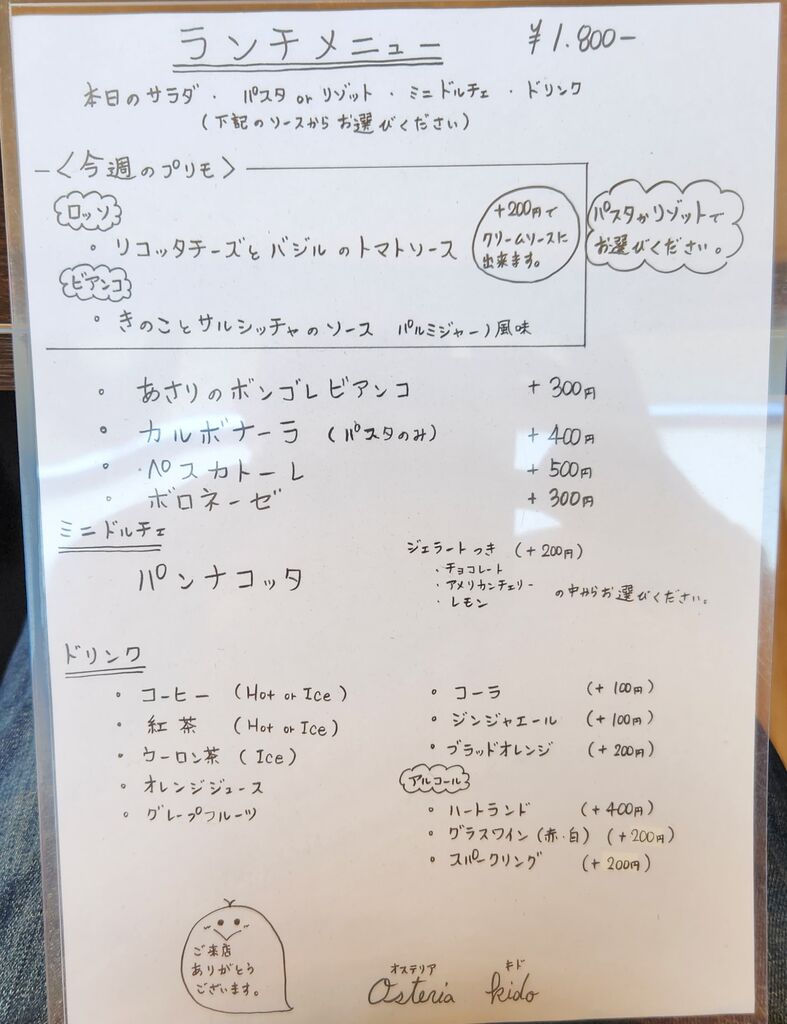 ランチメニュー ¥1.800-
本日のサラダ・パスタ or リゾット・ミニドルチェ・ドリンク
(下記のソースからお選びください)
<今週のプリモ>
ロッソ
・リコッタチーズとバジルのトマトソース
+200円で
クリームソースに
出来ます。
パスタかリゾットで
お選びください。
ビアンコ
・きのことサルシッチャのソース パルミジャーノ風味
・あさりのボンゴレビアンコ +300円
・カルボナーラ (パスタのみ) +400円
・ペスカトーレ +500円
・ボロネーゼ +300円
ミニドルチェ
パンナコッタ
ジェラートつき (+200円)
・チョコレート
・アメリカンチェリー
・レモン
の中からお選びください。
ドリンク
・コーヒー (Hot or Ice)
・紅茶 (Hot or Ice)
・ウーロン茶 (Ice)
・オレンジジュース
・グレープフルーツ
・コーラ (+100円)
・ジンジャエール (+100円)
・ブラッドオレンジ (+200円)
アルコール
・ハートランド (+400円)
・グラスワイン (赤・白) (+200円)
・スパークリング (+200円)
ご来店
ありがとう
ございます。
オステリア キド
Osteria kido